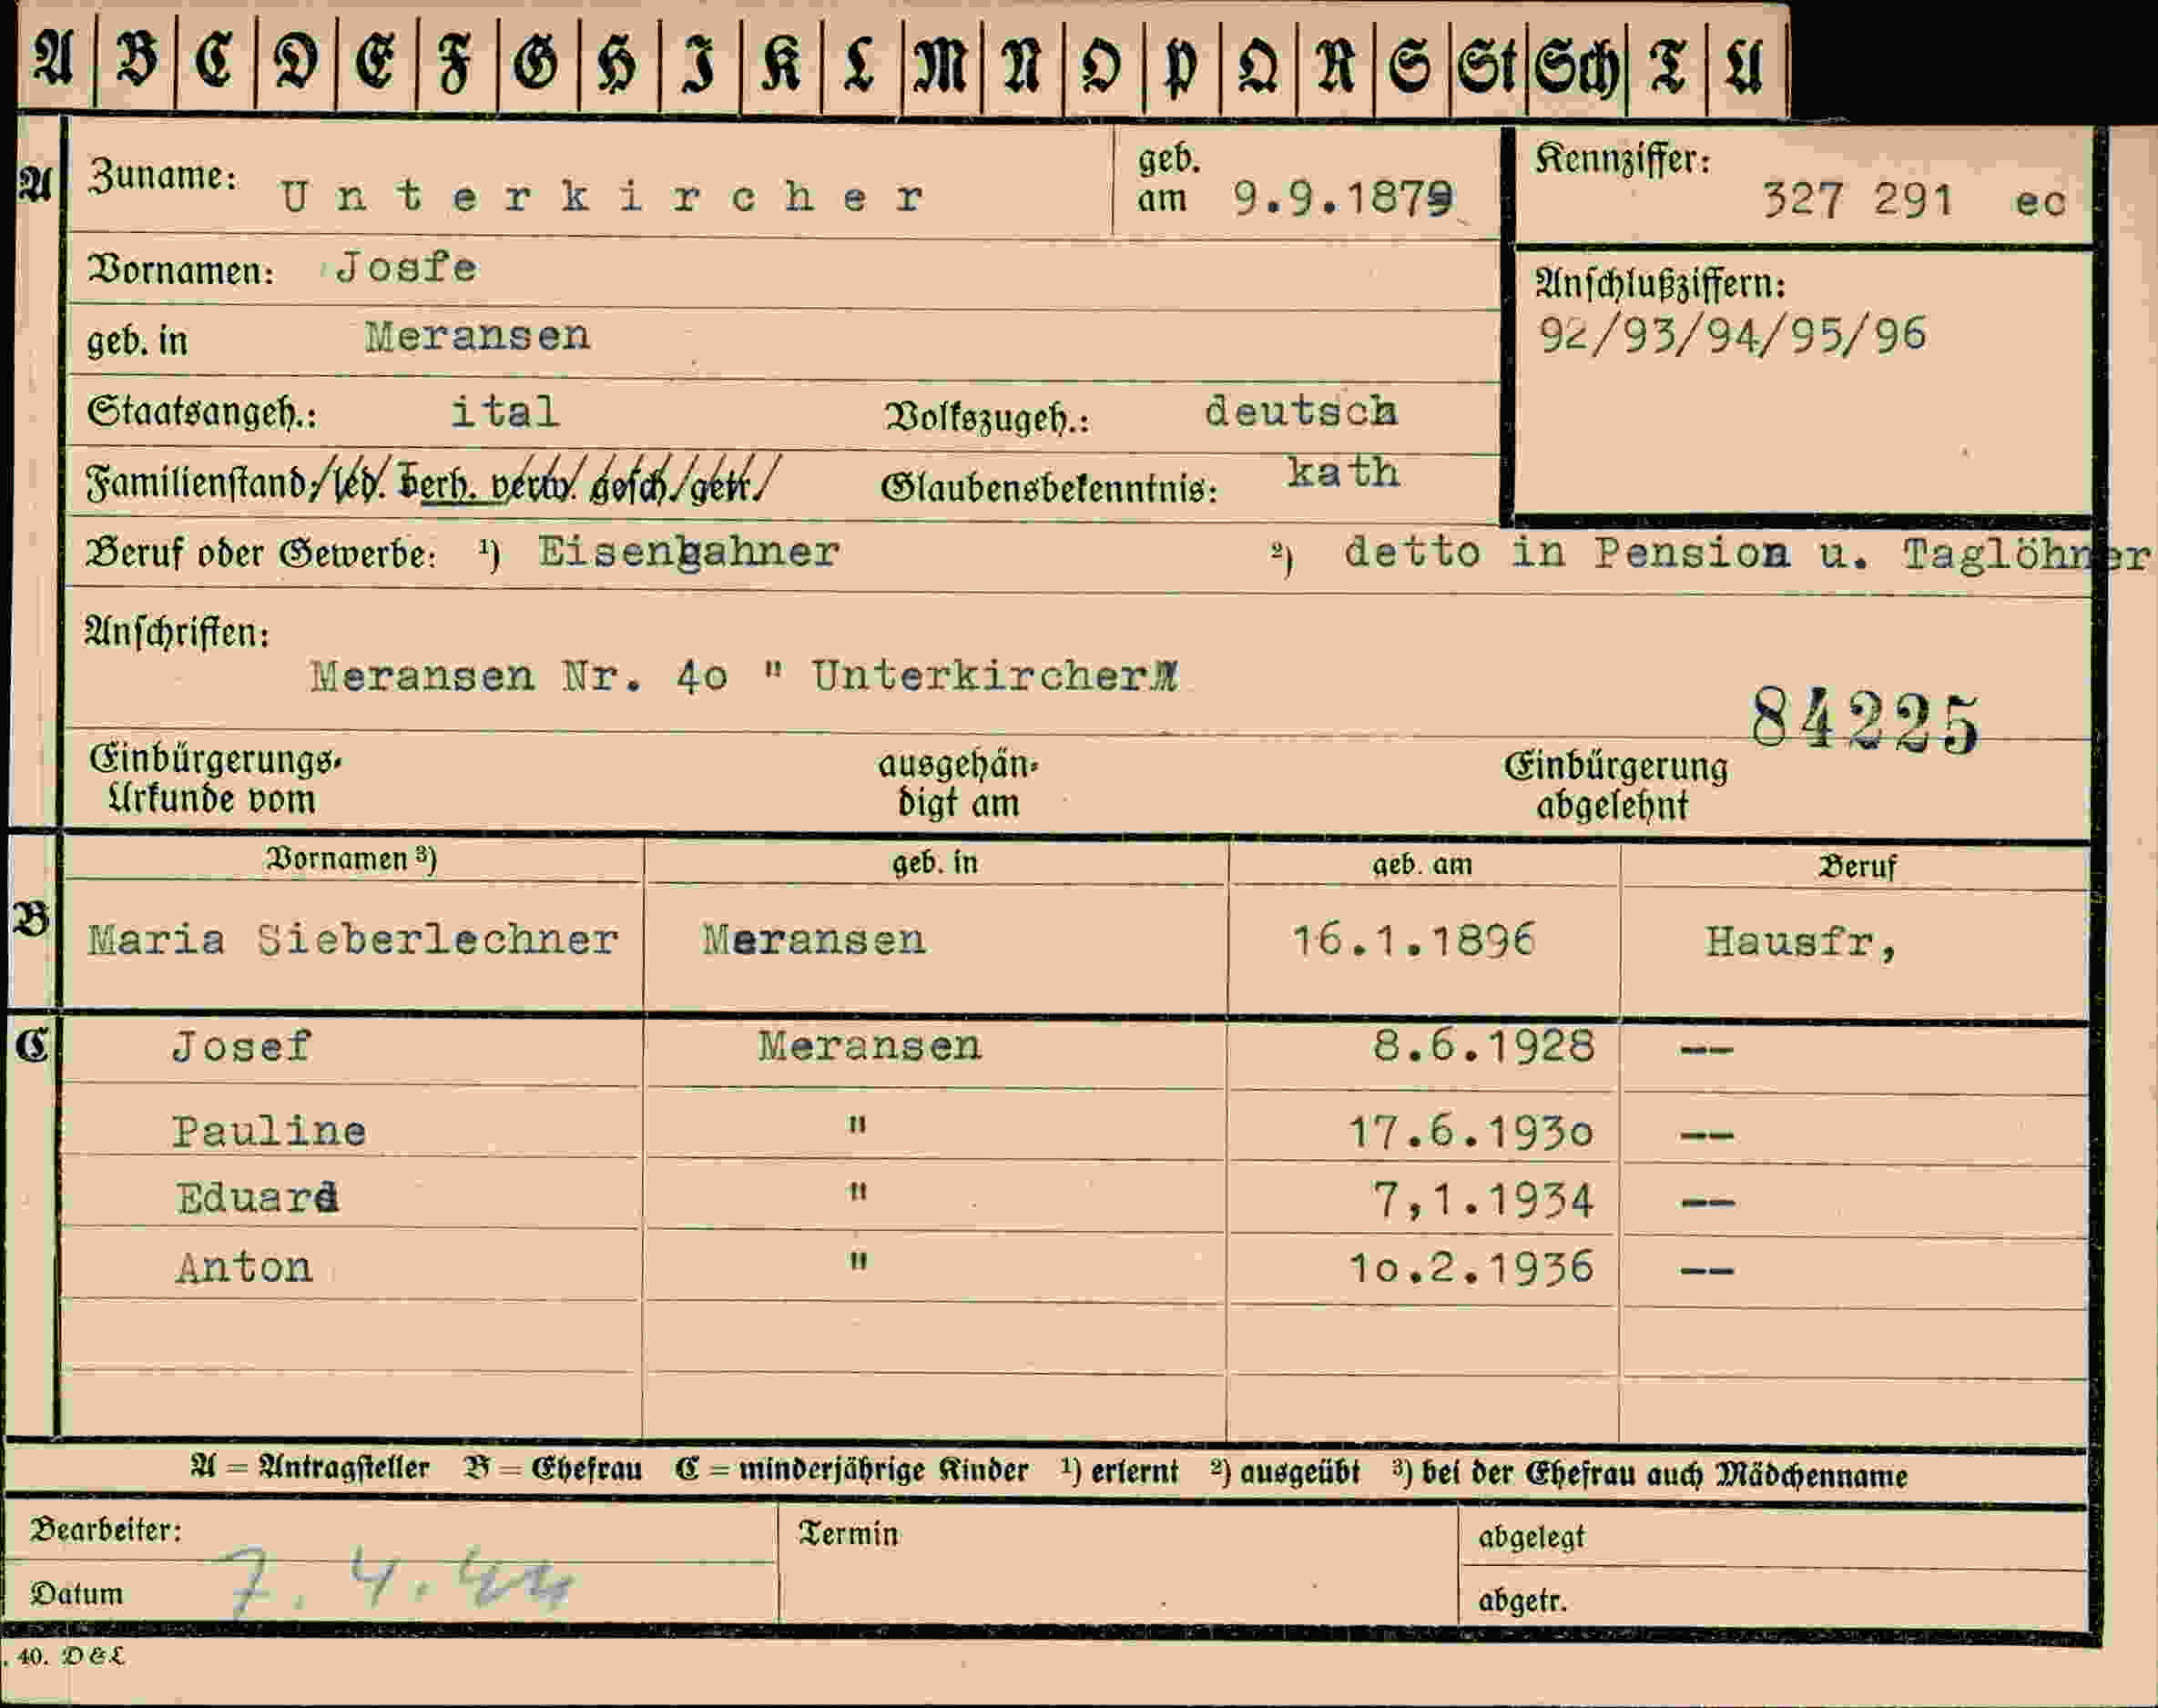 A B C D E F G H I K L M N O P Q R S St Sch T U
A Zuname: Unterkircher geb. am 9.9.1879 Kennziffer: 327 291 ec
Vornamen: Josfe
Anschlußziffern:
geb. in Meransen 92/93/94/95/96
Staatsangeh.: ital Volkszugeh.: deutsch
Familienstand: led. verh. verw. gesch. getr. Glaubensbekenntnis: kath
Beruf oder Gewerbe: ¹) Eisenbahner ²) detto in Pension u. Taglöhner
Anschriften:
Meransen Nr. 4o " Unterkircher"
84225
Einbürgerungs- ausgehän- Einbürgerung
Urkunde vom digt am abgelehnt
Vornamen ³) geb. in geb. am Beruf
B Maria Sieberlechner Meransen 16.1.1896 Hausfr,
C Josef Meransen 8.6.1928 --
Pauline " 17.6.193o --
Eduard " 7,1.1934 --
Anton " 1o.2.1936 --
A = Antragsteller B = Ehefrau C = minderjährige Kinder ¹) erlernt ²) ausgeübt ³) bei der Ehefrau auch Mädchenname
Bearbeiter: Termin abgelegt
Datum 7. 4. 44 abgetr.
. 40. D & L